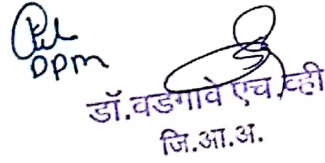 DPM
डॉ.वडगावे एच.व्ही
जि.आ.अ.